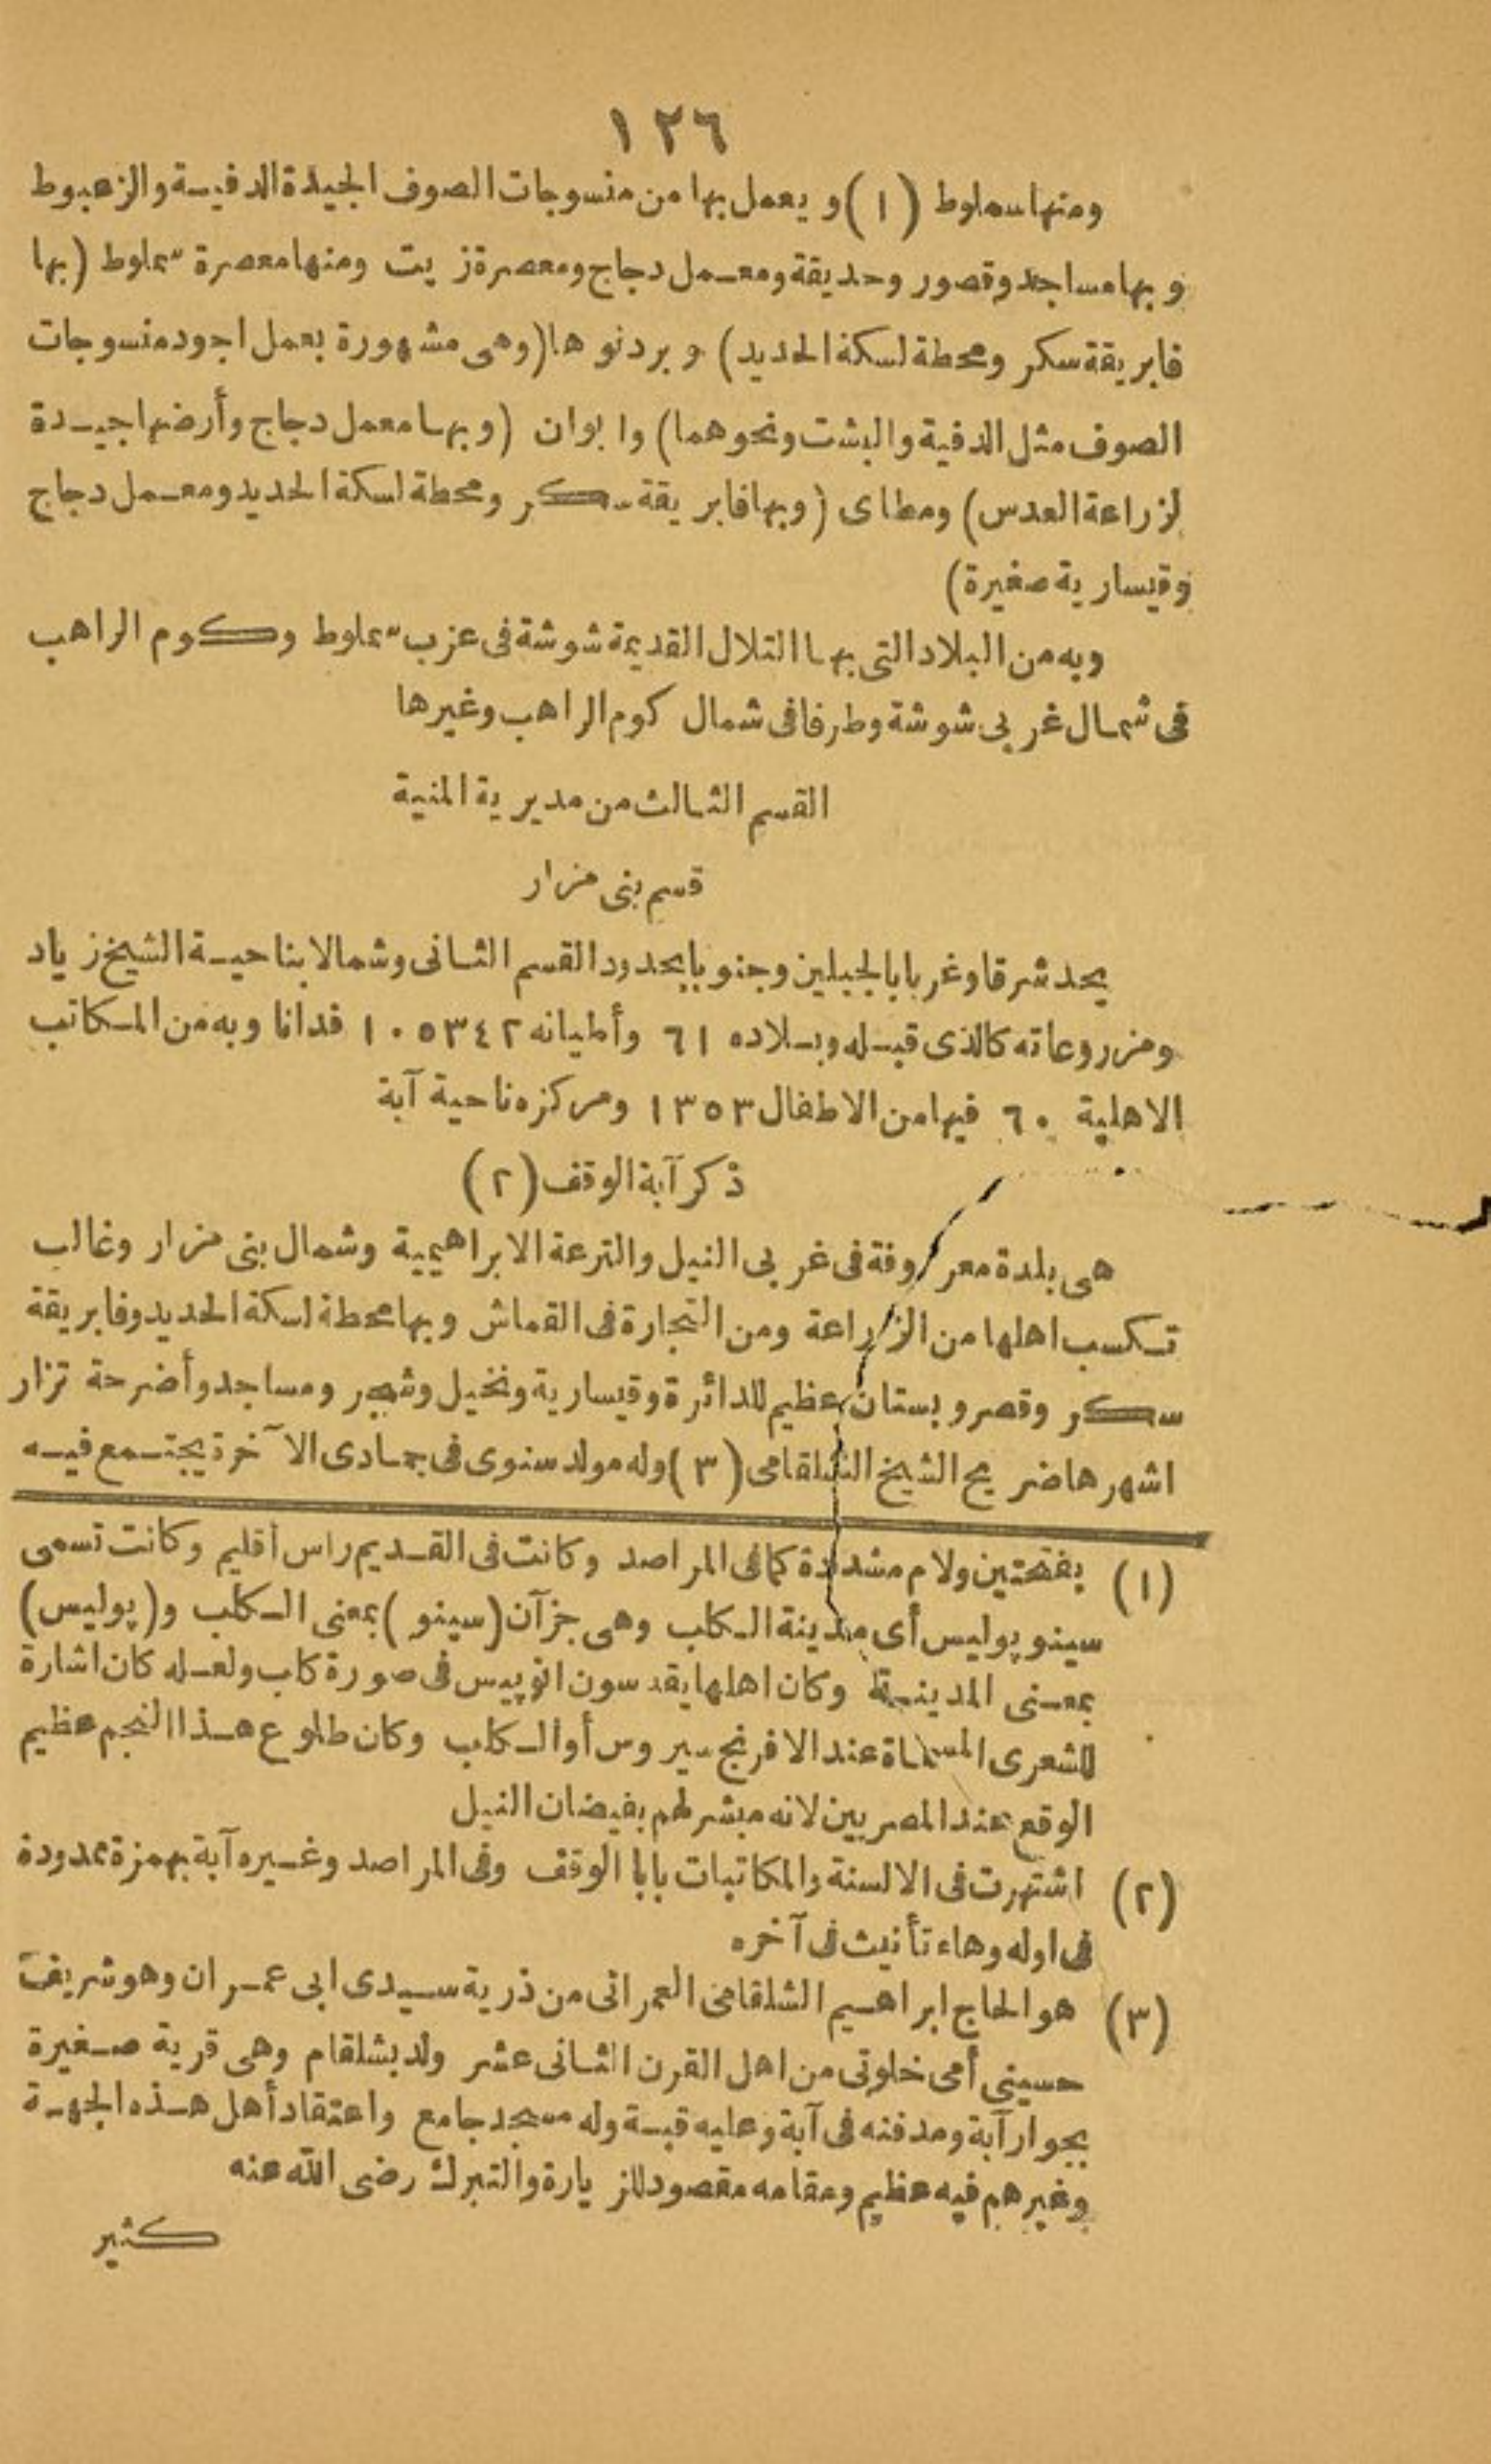 ١٢٦
ومنها سملوط (١) و يعمل بها من منسوجات الصوف الجيدة الدفيـة والزعبوط
و بها مساجد وقصور وحديقة ومعـمل دجاج ومعصرة زيت ومنها معصرة سملوط (بها
فابريقة سكر ومحطة لسكة الحديد) و بردنوها (وهى مشهورة بعمل اجود منسوجات
الصوف مثل الدفية والبشت ونحوهما) وابوان (و بهـا معمل دجاج وأرضها جيـدة
لزراعة العدس) ومطاى (وبها فابريقة سـكر ومحطة لسكة الحديد ومعـمل دجاج
وقيسارية صغيرة)
وبه من البلاد التى بهـا التلال القديمة شوشة فى غرب سملوط وكوم الراهب
فى شمـال غربى شوشة وطرفا فى شمال كوم الراهب وغيرها
القسم الثـالث من مديرية المنية
قسم بنى مزار
يحد شرقا وغربا بالجبلين وجنوبا بحدود القسم الثـانى وشمالا بناحيـة الشيخ زياد
ومزروعاته كالذى قبـله وبـلاده ٦١ وأطيانه ١٠٥٣٤٢ فدانا وبه من المـكاتب
الاهلية ٦٠ فيها من الاطفال ١٣٥٣ ومركزه ناحية آبة
ذكر آبة الوقف (٢)
هى بلدة معروفة فى غربى النيل والترعة الابراهيمية وشمال بنى مزار وغالب
تـكسب اهلها من الزراعة ومن التجارة فى القماش وبها محطة لسكة الحديد وفابريقة
سـكر وقصر وبستان عظيم للدائرة وقيسارية ونخيل وشجر ومساجد وأضرحة تزار
اشهرها ضريح الشيخ الشلقامى (٣) وله مولد سنوى فى جمـادى الآخرة يجتـمع فيـه
(١) بفتحتين ولام مشددة كما فى المراصد وكانت فى القـديم راس اقليم وكانت تسمى
سينوپوليس أى مدينة الـكلب وهى جزآن (سينو) بمعنى الـكلب و(پوليس)
بمعـنى المدينـة وكان اهلها يقدسون انوپيس فى صورة كلب ولعـله كان اشارة
للشعرى المسمـاة عند الافرنج سيروس أو الـكلب وكان طلوع هـذا النجم عظيم
الوقع عند المصريين لانه مبشر لهم بفيضان النيل
(٢) اشتهرت فى الالسنة والمكاتبات بابا الوقف وفى المراصد وغـيره آبة بهمزة ممدودة
فى اوله وهاء تأنيث فى آخره
(٣) هو الحاج ابراهـيم الشلقامى العمرانى من ذرية سـيدى ابى عمـران وهو شريف
حسينى أمى خلوتى من اهل القرن الثـانى عشر ولد بشلقام وهى قرية صـغيرة
بجوار آبة ومدفنه فى آبة وعليه قبـة وله مسجد جامع واعتقاد أهل هـذه الجهـة
وغيرهم فيه عظيم ومقامه مقصود للزيارة والتبرك رضى الله عنه
كثير